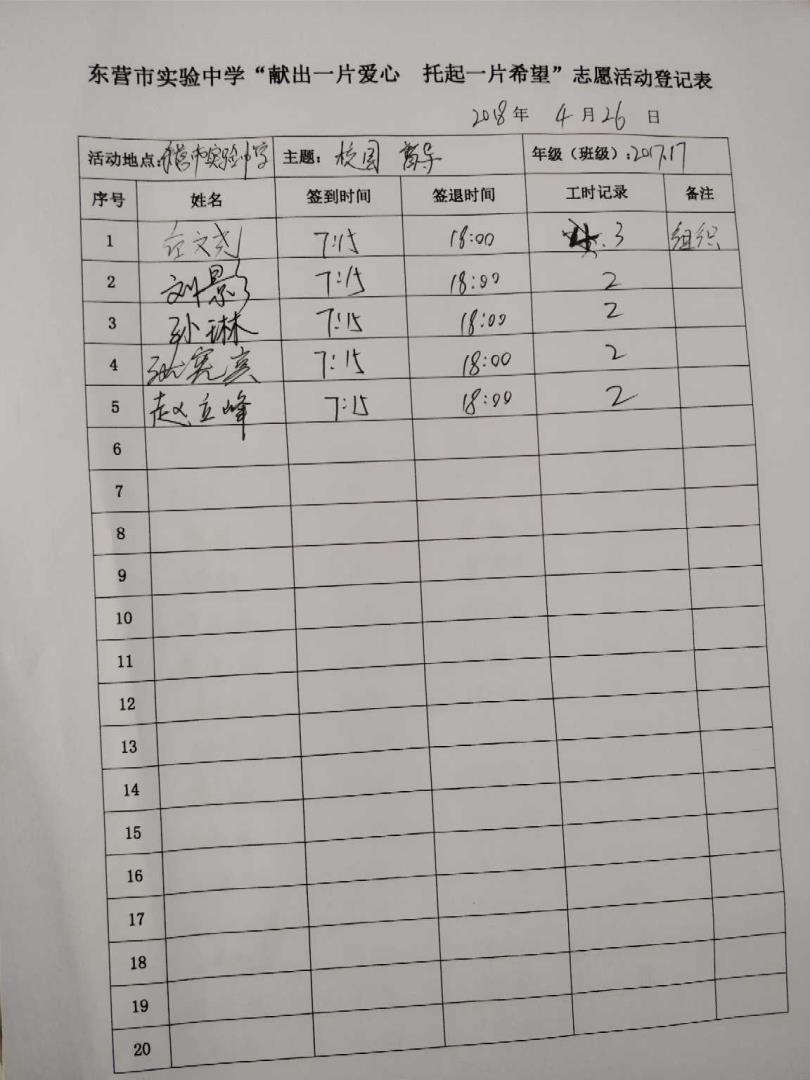 东营市实验中学“献出一片爱心 托起一片希望”志愿活动登记表
2018 年 4 月 26 日
活动地点:东营市实验中学 主题: 校园 督导 年级（班级）:2017.17
序号 姓名 签到时间 签退时间 工时记录 备注
1 文尧 7:15 18:00 3 组织
2 刘影 7:15 18:00 2
3 孙琳 7:15 18:00 2
4 宪真 7:15 18:00 2
5 赵立峰 7:15 18:00 2
6
7
8
9
10
11
12
13
14
15
16
17
18
19
20